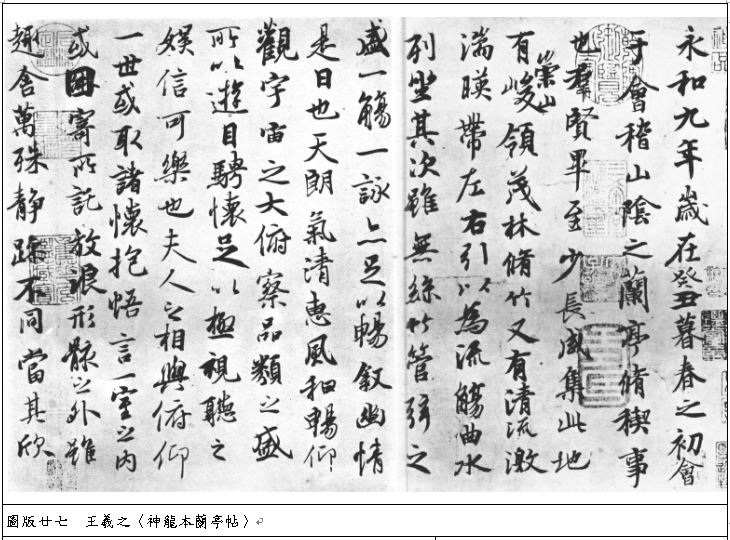 永和九年歲在癸丑暮春之初會
于會稽山陰之蘭亭脩稧事
也羣賢畢至少長咸集此地
有崇山峻領茂林脩竹又有清流激
湍暎帶左右引以為流觴曲水
列坐其次雖無絲竹管弦之
盛一觴一詠亦足以暢敘幽情
是日也天朗氣清惠風和暢仰
觀宇宙之大俯察品類之盛
所以遊目騁懷足以極視聽之
娛信可樂也夫人之相與俯仰
一世或取諸懷抱悟言一室之內
或因寄所託放浪形骸之外雖
趣舍萬殊靜躁不同當其欣
圖版廿七　王羲之〈神龍本蘭亭帖〉